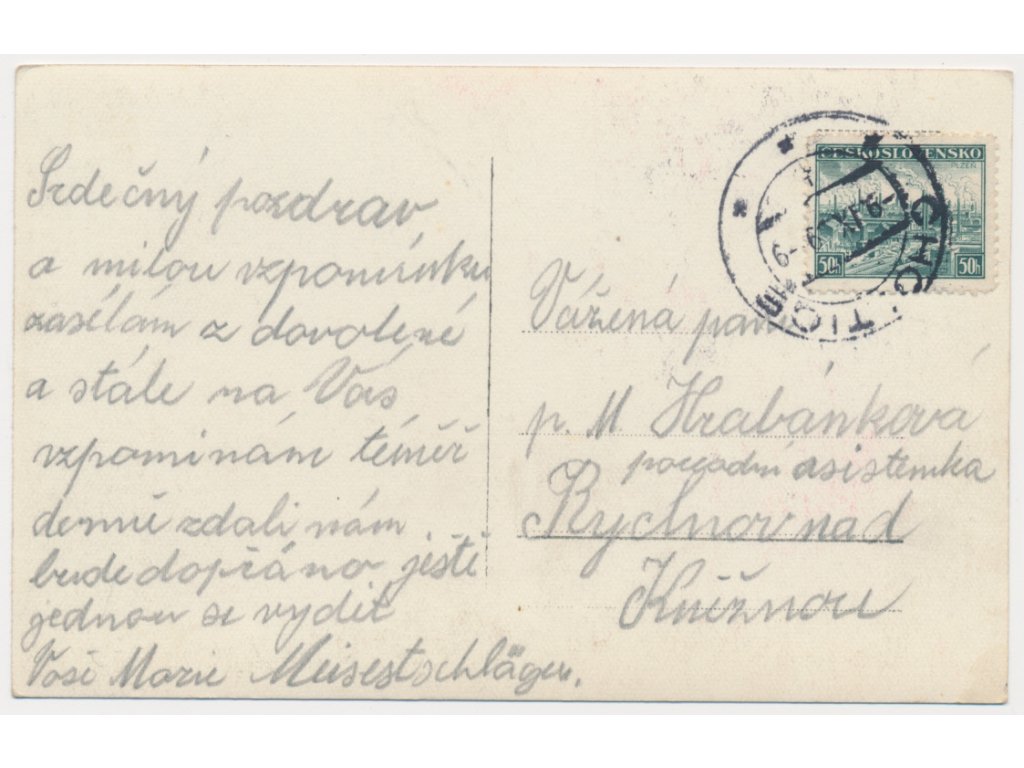 Srdečný pozdrav
a milou vzpomínku
zasílám z dovolené
a stále na Vás
vzpominám téměř
denně zdali nám
bude dopřáno ještě
jednou se vydit
Vaše Marie
ČESKOSLOVENSKO
PLZEŇ
50h 50h
Vážená paní
p. M. Hrabánková
asistentka
Rychnov nad
Kněžnou